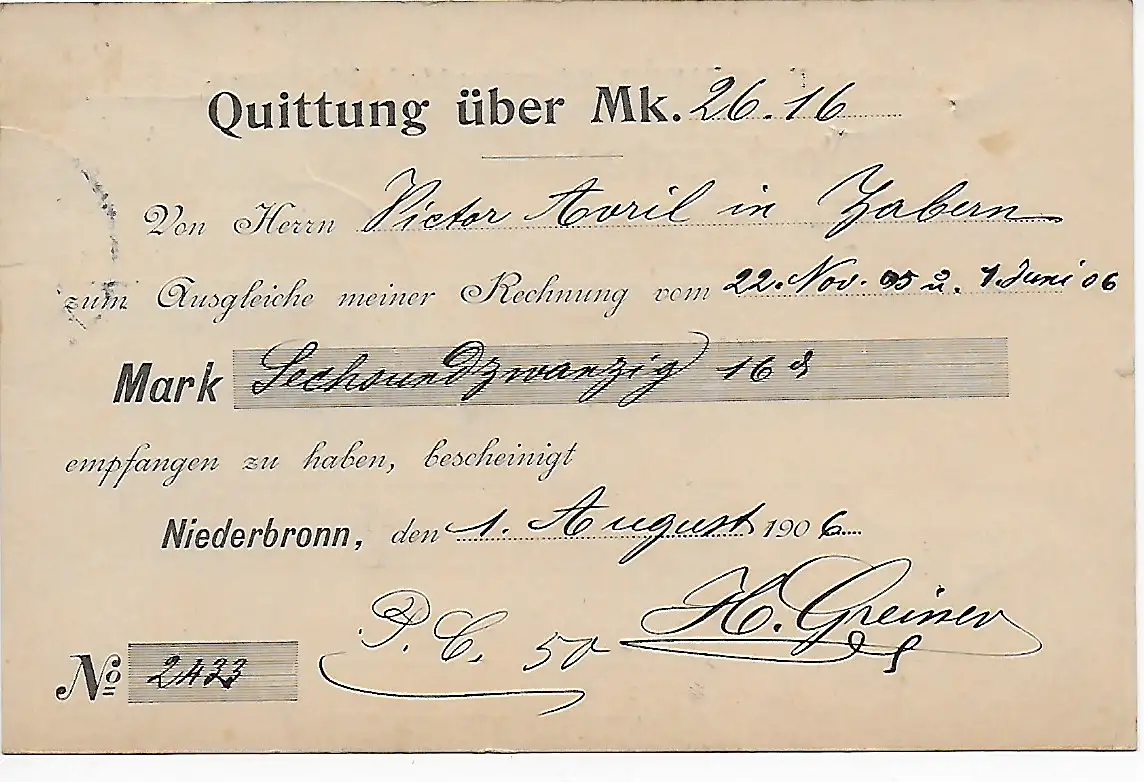 Quittung über Mk. 26.16
Von Herrn Victor Avril in Zabern
zum Ausgleiche meiner Rechnung vom 22. Nov. 05 u. 1. Juni 06
Mark Sechsundzwanzig 16 ₰
empfangen zu haben, bescheinigt
Niederbronn, den 1. August 1906
H. Greiner
P. C. 50
No 2433